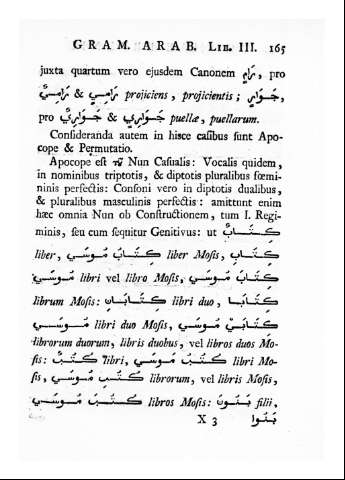 GRAM. ARAB. LIB. III. 165
juxta quartum vero ejusdem Canonem رَامٍ, pro
رَامِيٍ & رَامِيٌ projiciens, projicientis; جَوَارٍ,
pro جَوَارِيٌ & جَوَارِيٍ puellæ, puellarum.
Consideranda autem in hisce casibus sunt Apo-
cope & Permutatio.
Apocope est Nun Casualis: Vocalis quidem,
in nominibus triptotis, & diptotis pluralibus fœmi-
ninis perfectis: Consoni vero in diptotis dualibus,
& pluralibus masculinis perfectis: amittunt enim
hæc omnia Nun ob Constructionem, tum I. Regi-
minis, seu cum sequitur Genitivus: ut كِتَابٌ
liber, كِتَابُ مُوسَي liber Mosis, كِتَابِ
مُوسَي libri vel libro Mosis, كِتَابَ مُوسَي
librum Mosis: كِتَابَانِ libri duo, كِتَابَا
مُوسَي libri duo Mosis, كِتَابَيْ مُوسَي
librorum duorum, libris duobus, vel libros duos Mo-
sis: كُتُبٌ libri, كُتُبُ مُوسَي libri Mo-
sis, كُتُبِ مُوسَي librorum, vel libris Mosis,
كُتُبَ مُوسَي libros Mosis: بَنُونَ filii,
X 3 بَنُوا